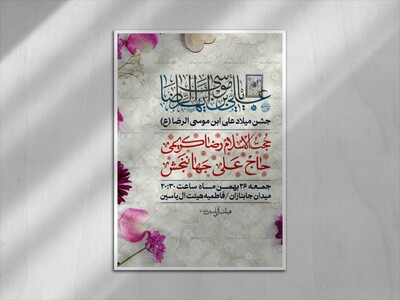 یا علی بن موسی ایها الرضا
جشن میلاد علی ابن موسی الرضا (ع)
حجت الاسلام رضا کریمی
حاج علی جهانبخش
جمعه ۲۶ بهمن ماه ساعت ۲۰:۳۰
میدان جانبازان / فاطمیه هیئت ال یاسین